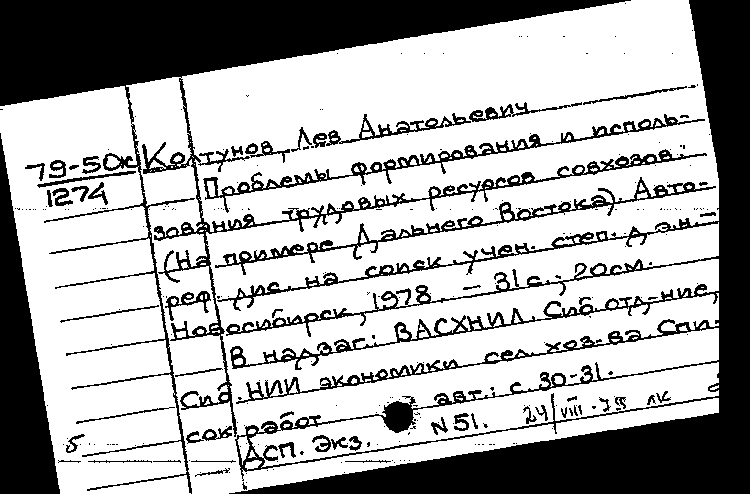 79-50ж Колтунов, Лев Анатольевич
1274 Проблемы формирования и исполь-
зования трудовых ресурсов совхозов:
(На примере Дальнего Востока). Авто-
реф. дис. на соиск. учен. степ. д.э.н. -
Новосибирск, 1978. - 31 с.; 20см.
В надзаг.: ВАСХНИЛ. Сиб. отд-ние,
Сиб. НИИ экономики сел. хоз-ва. Спи-
сок работ авт.: с. 30-31.
б ДСП. Экз. N 51. 24/VIII-